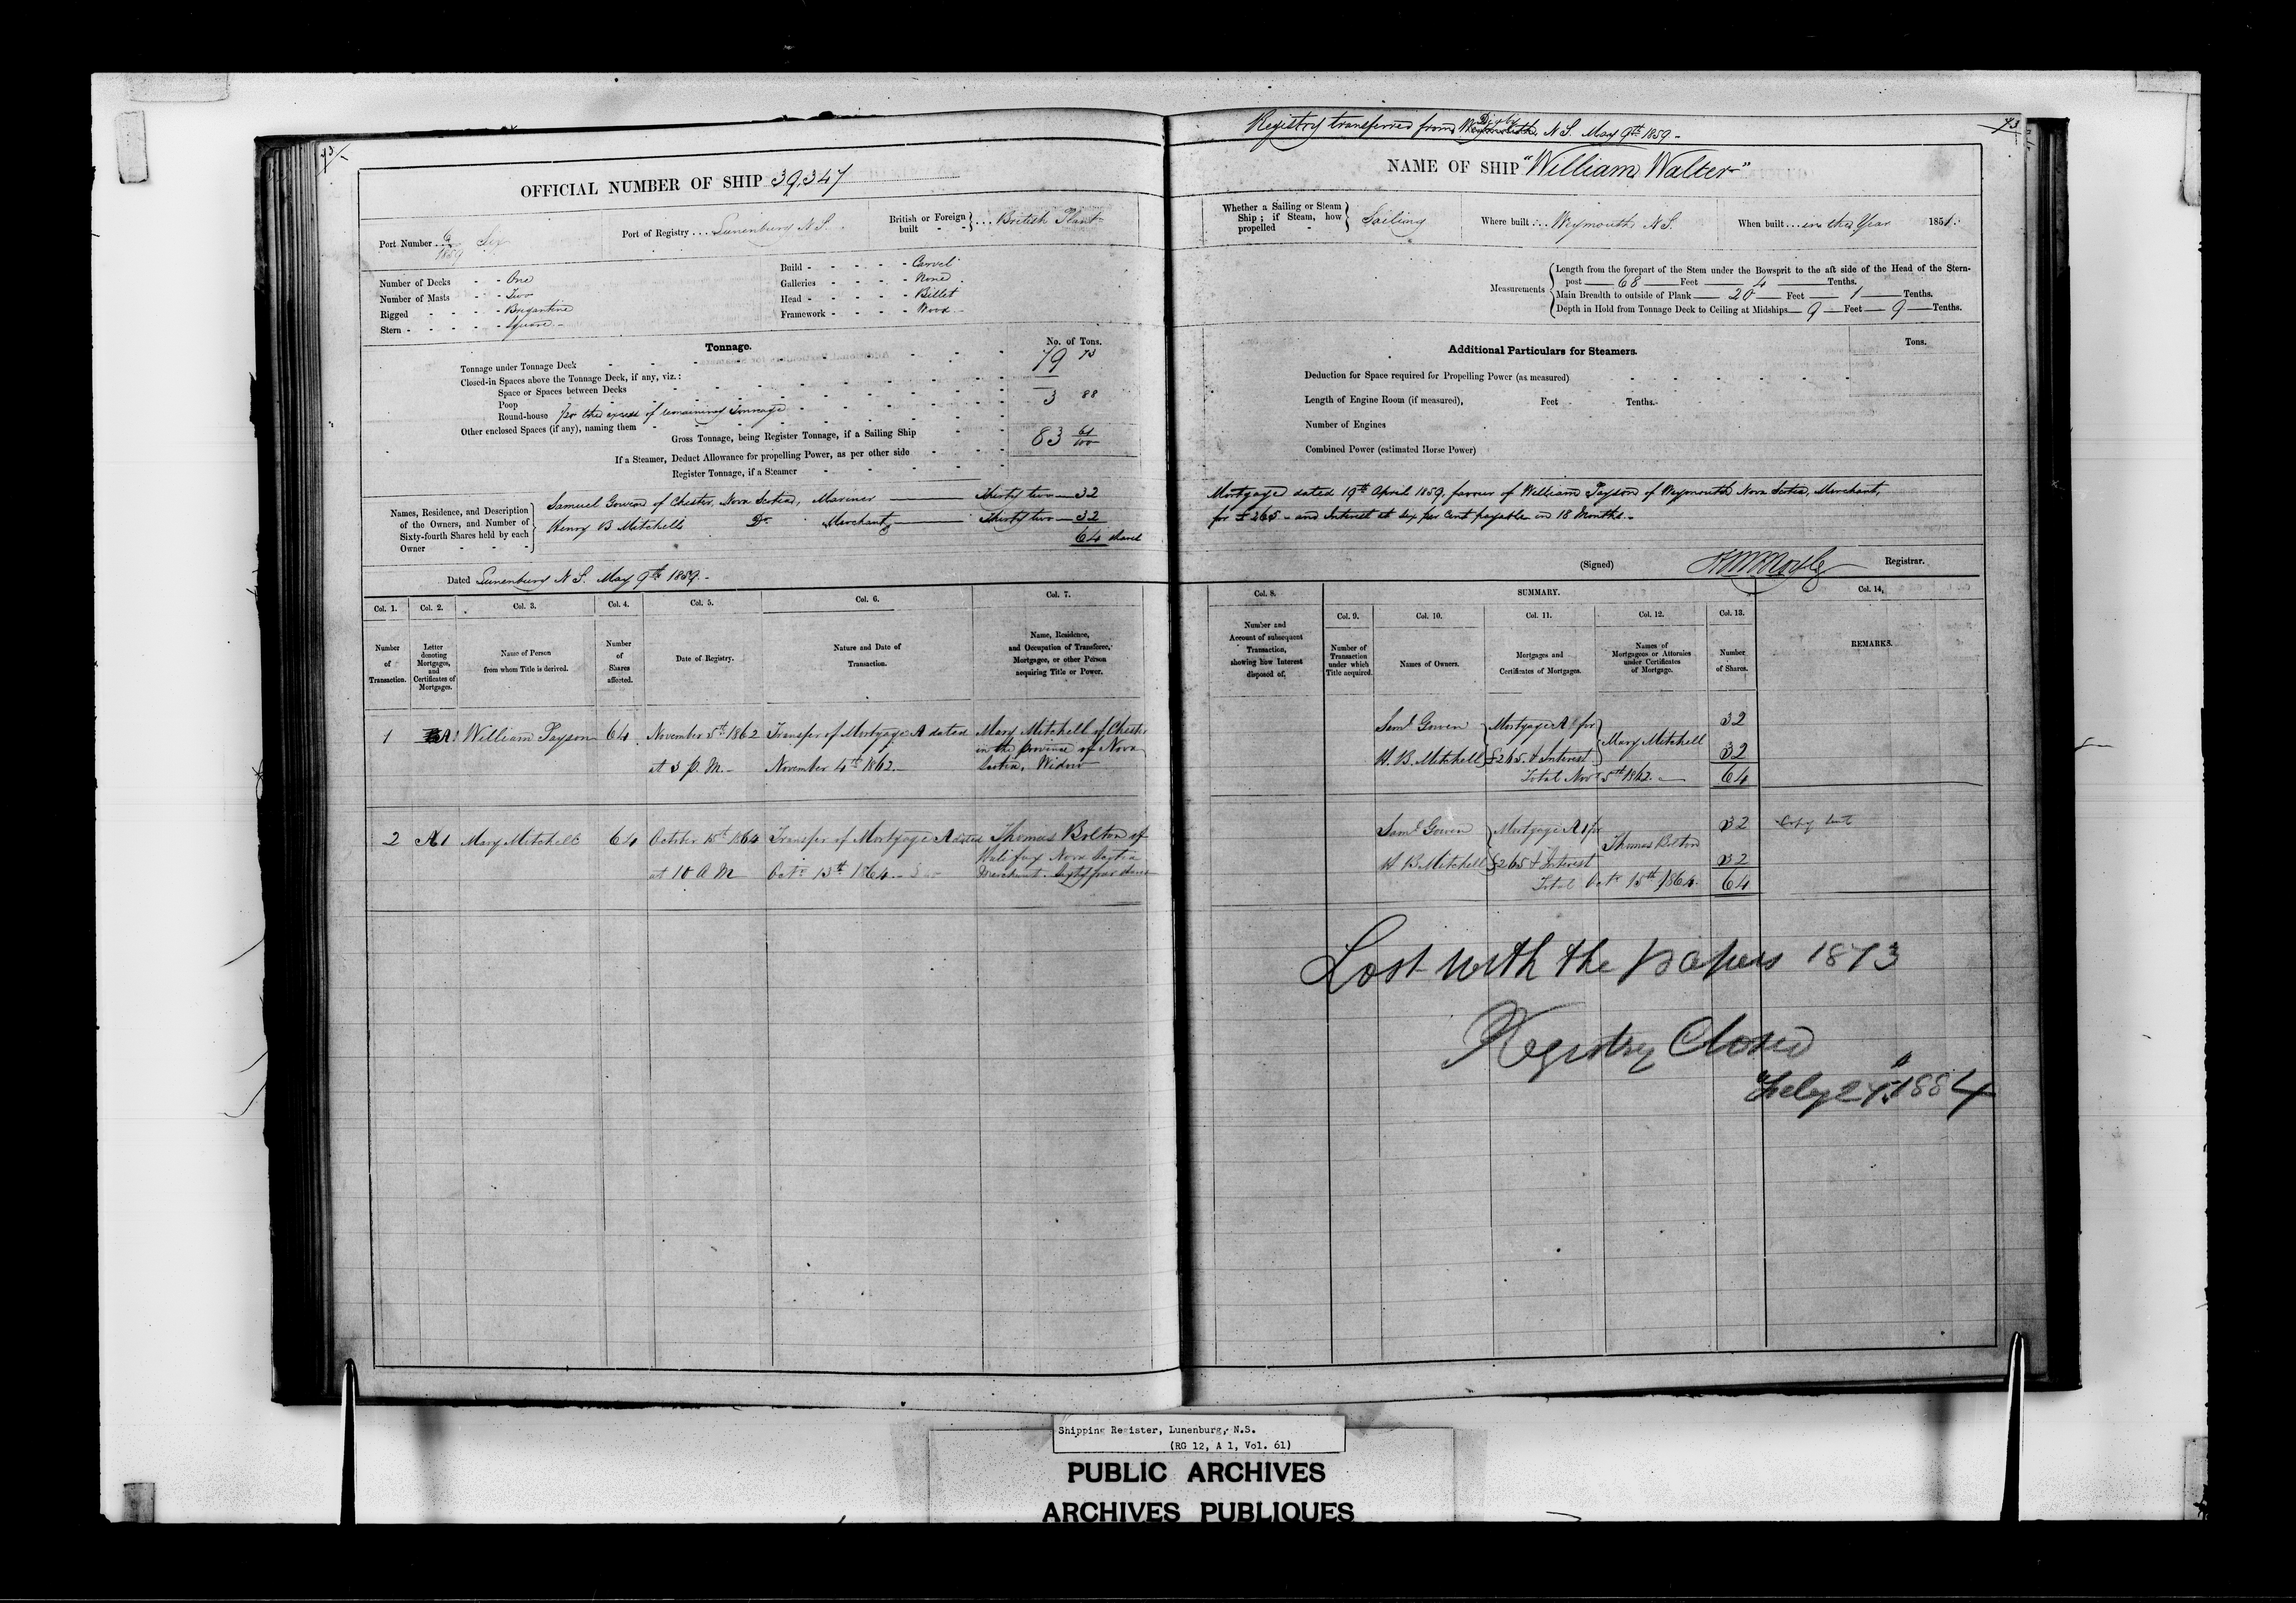 73/-
OFFICIAL NUMBER OF SHIP 39,347
Port Number 6/1859 Six
Port of Registry ... Lunenburg N.S.
British or Foreign built - - } ... British Plant
Number of Decks - - One
Number of Masts - - Two
Rigged - - - - Brigantine
Stern - - - - - Square -
Build - - - - - Carvel
Galleries - - - - None
Head - - - - - Billet
Framework - - - - Wood
Tonnage.
No. of Tons.
Tonnage under Tonnage Deck 79 73
Closed-in Spaces above the Tonnage Deck, if any, viz.:
Space or Spaces between Decks
Poop 3 88
Round-house for the excess of remaining Tonnage
Other enclosed Spaces (if any), naming them
Gross Tonnage, being Register Tonnage, if a Sailing Ship 83 61/100
If a Steamer, Deduct Allowance for propelling Power, as per other side
Register Tonnage, if a Steamer
Names, Residence, and Description of the Owners, and Number of Sixty-fourth Shares held by each Owner
Samuel Gowen of Chester, Nova Scotia, Mariner — Thirty two — 32
Henry B Mitchell Do. Merchant — Thirty two — 32
64 shares
Dated Lunenburg N S. May 9th 1859.-
Col. 1. Col. 2. Col. 3. Col. 4. Col. 5. Col. 6. Col. 7.
Number of Transaction.
Letter denoting Mortgages, and Certificates of Mortgages.
Name of Person from whom Title is derived.
Number of Shares affected.
Date of Registry.
Nature and Date of Transaction.
Name, Residence, and Occupation of Transferee, Mortgagee, or other Person acquiring Title or Power.
1 A1 William Payson 64 November 5th 1862 Transfer of Mortgage A dated Mary Mitchell of Chester
at 3 p. M.- November 4th 1862.- in the province of Nova
Scotia, Widow
2 A1 Mary Mitchell 64 October 15th 1864 Transfer of Mortgage A dated Thomas Bolton of
at 10 A M Octr 13th 1864.- Halifax Nova Scotia
Merchant.
Registry transferred from Weymouth Digby, N S. May 9th 1859.-
73
NAME OF SHIP "William Walter"
Whether a Sailing or Steam Ship; if Steam, how propelled - } Sailing
Where built ... Weymouth N.S.
When built ... in the Year 1851.
Measurements
Length from the forepart of the Stem under the Bowsprit to the aft side of the Head of the Stern-
post — 68 — Feet — 4 — Tenths.
Main Breadth to outside of Plank — 20 — Feet — 1 — Tenths.
Depth in Hold from Tonnage Deck to Ceiling at Midships — 9 — Feet — 9 — Tenths.
Additional Particulars for Steamers.
Tons.
Deduction for Space required for Propelling Power (as measured)
Length of Engine Room (if measured), Feet Tenths.
Number of Engines
Combined Power (estimated Horse Power)
Mortgage dated 19th April 1859, favour of William Payson of Weymouth Nova Scotia, Merchant,
for £265 - and Interest at six per Cent payable in 18 Months.-
(Signed) Registrar.
Col. 8. SUMMARY. Col. 14.
Col. 9. Col. 10. Col. 11. Col. 12. Col. 13.
Number and Account of subsequent Transaction, showing how Interest disposed of.
Number of Transaction under which Title acquired.
Names of Owners.
Mortgages and Certificates of Mortgages.
Names of Mortgagees or Attornies under Certificates of Mortgage.
Number of Shares.
REMARKS.
Saml Gowen Mortgage A for 32
H. B. Mitchell £265. & Interest Mary Mitchell 32
Total Novr 5th 1862.- 64
Saml Gowen Mortgage A 1 for 32
H. B. Mitchell £265 & Interest Thomas Bolton 32
Total Octr 15th 1864. 64
Lost with the papers 1873
Registry Closed
1884
Shipping Register, Lunenburg, N.S.
(RG 12, A 1, Vol. 61)
PUBLIC ARCHIVES
ARCHIVES PUBLIQUES